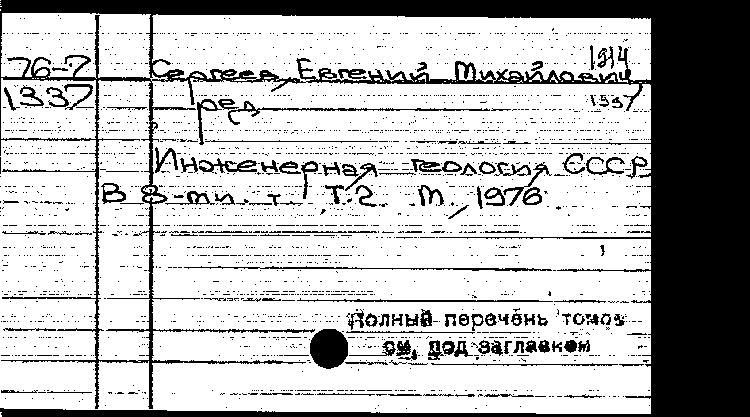 76-7 Сергеев, Евгений Михайлович 1914
1337 ред. 1337
Инженерная геология СССР
В 8-ми т. Т.2. М., 1976
Полный перечень томов
см. под заглавием